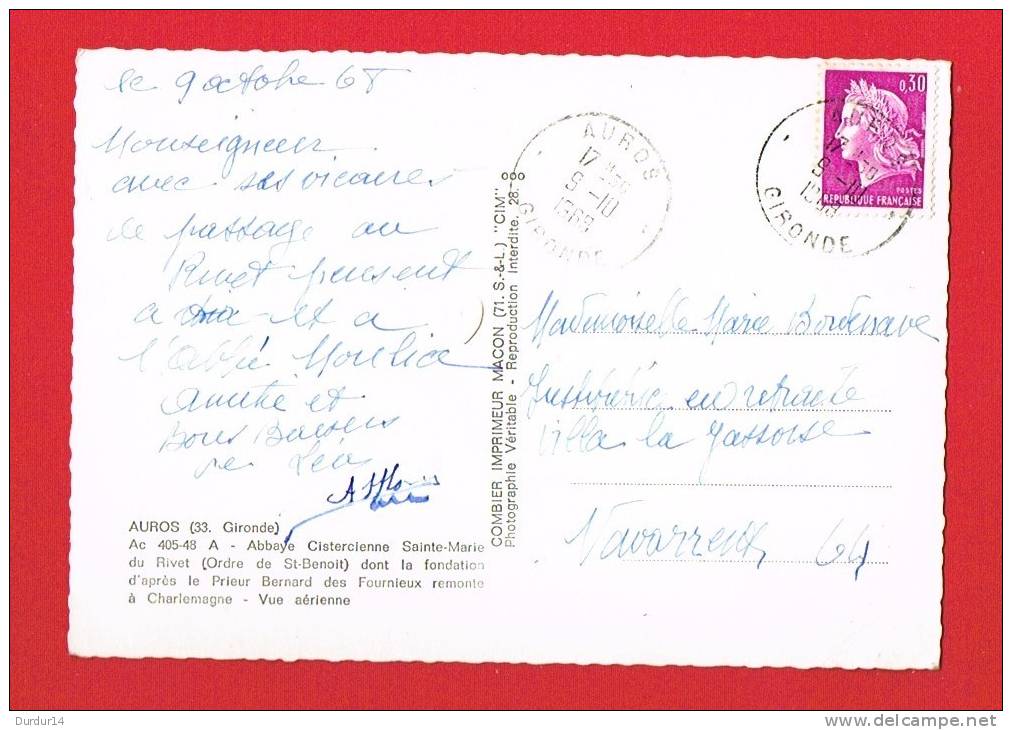 le 9 octobre 68
Monseigneur
avec ses vicaires
de passage au
Rivet pensent
a toi et a
l'abbé
amitié et
Bons Baisers
de Léo
AUROS (33. Gironde)
Ac 405-48 A - Abbaye Cistercienne Sainte-Marie
du Rivet (Ordre de St-Benoit) dont la fondation
d'après le Prieur Bernard des Fournieux remonte
à Charlemagne - Vue aérienne
COMBIER IMPRIMEUR MACON (71. S.-&-L.) "CIM"
Photographie Véritable - Reproduction Interdite. 28.-8
AUROS
17 H
9-10
1968
GIRONDE
0,30
POSTES
REPUBLIQUE FRANÇAISE
17 H
9-10
1968
GIRONDE
Mademoiselle Marie Bordenave
en retraite
villa la
Navarrenx 64
Durdur14
www.delcampe.net